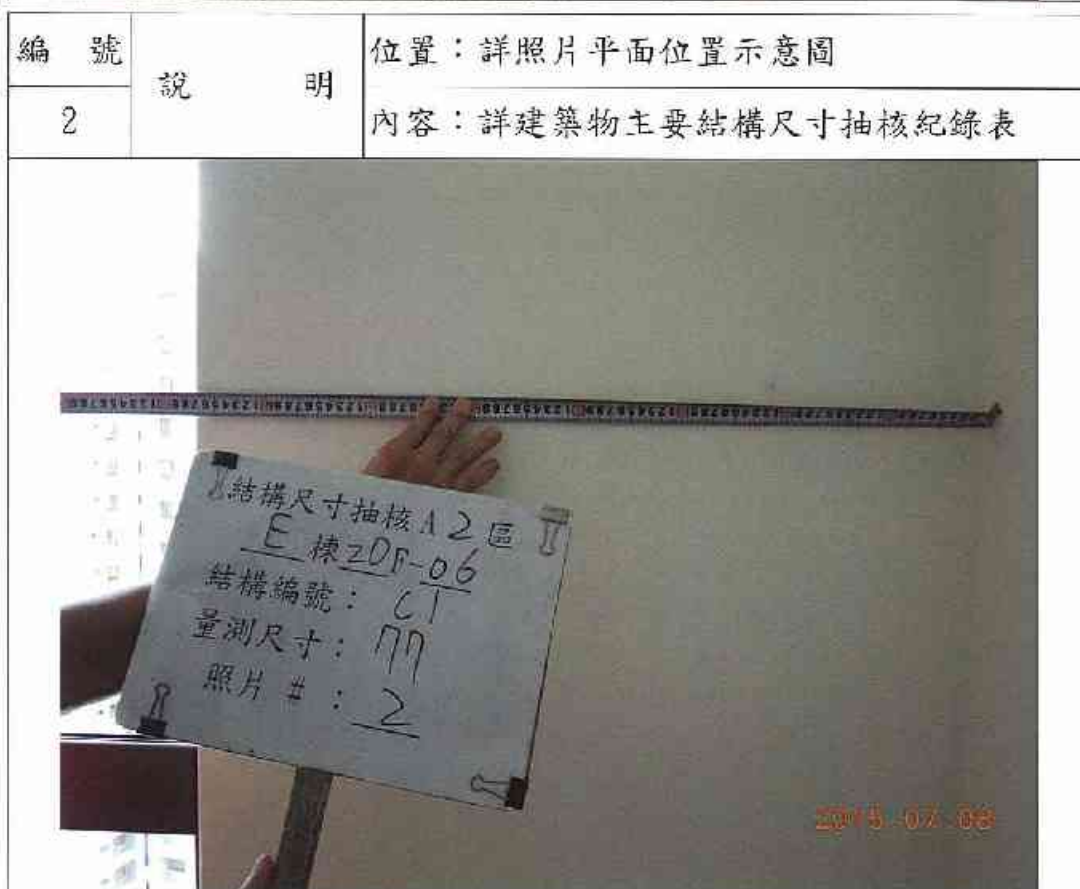 編 號
2
說 明
位置：詳照片平面位置示意圖
內容：詳建築物主要結構尺寸抽核紀錄表
結構尺寸抽核A2區
E棟20F-06
結構編號：C1
量測尺寸：77
照片 #：2
2015 07 08